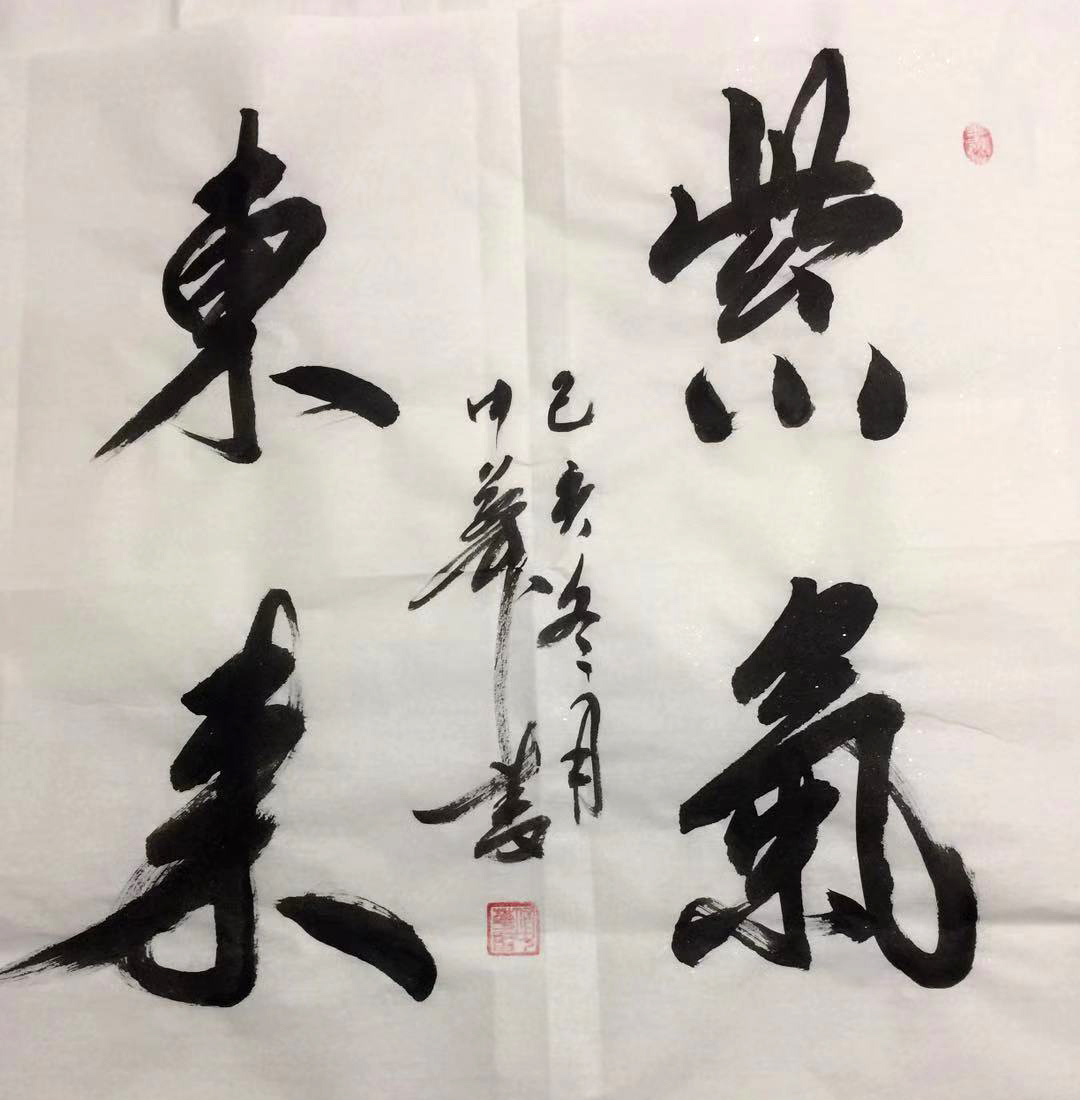 紫氣
東来
己亥冬月
中華書